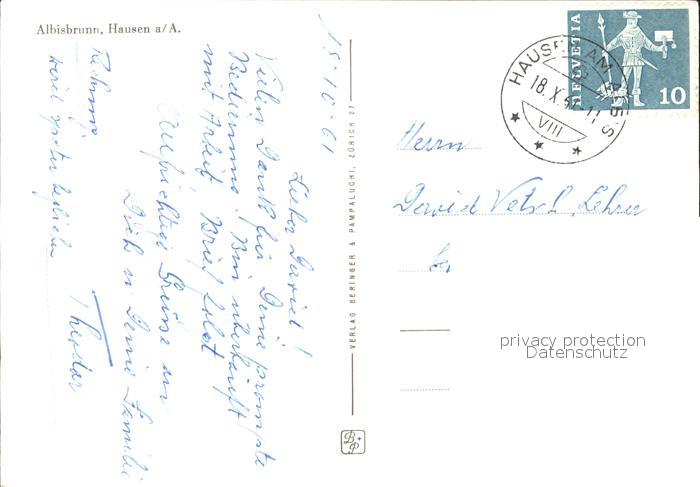 Albisbrunn, Hausen a/A.
18-10-61
Lieber David!
Vielen Dank für Deine prompte
Bedienung. Bin überhäuft
mit Arbeit. Brief folgt
Aufrichtige Grüsse an
Dich u. Deine Familie
Theodor
Rechnung
werde später begleichen
VERLAG BERINGER & PAMPALUCHI, ZÜRICH 27
B+P
HELVETIA
10
HAUSEN AM ALBIS
18.X.61-11
VIII
Herrn
David Vetsch, Lehrer
privacy protection
Datenschutz